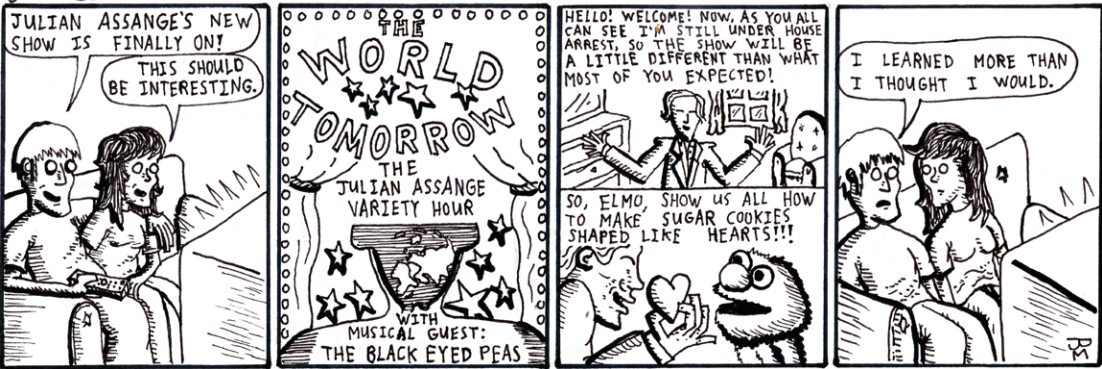 JULIAN ASSANGE'S NEW
SHOW IS FINALLY ON!
THIS SHOULD
BE INTERESTING.
THE
WORLD
TOMORROW
THE
JULIAN ASSANGE
VARIETY HOUR
WITH
MUSICAL GUEST:
THE BLACK EYED PEAS
HELLO! WELCOME! NOW, AS YOU ALL
CAN SEE I'M STILL UNDER HOUSE
ARREST, SO THE SHOW WILL BE
A LITTLE DIFFERENT THAN WHAT
MOST OF YOU EXPECTED!
SO, ELMO, SHOW US ALL HOW
TO MAKE SUGAR COOKIES
SHAPED LIKE HEARTS!!!
I LEARNED MORE THAN
I THOUGHT I WOULD.